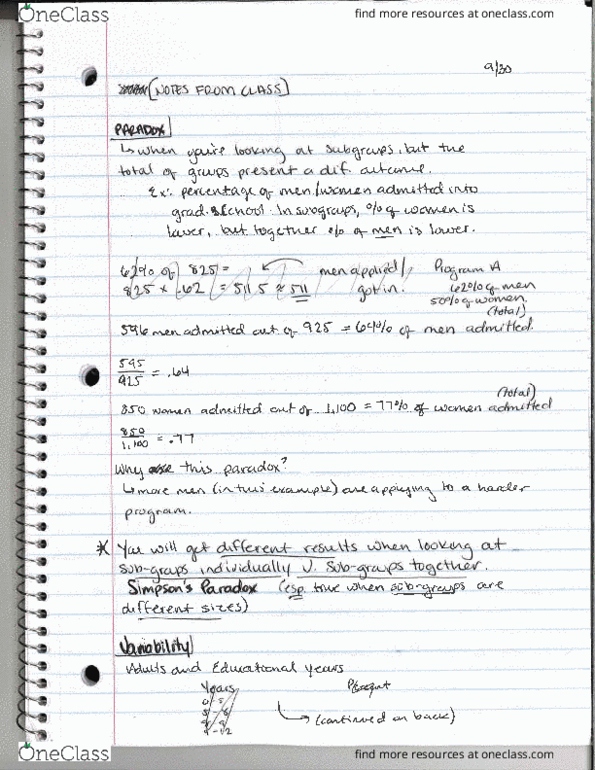 OneClass
find more resources at oneclass.com
9/30
[NOTES FROM CLASS]
PARADOX
↳ when you're looking at subgroups, but the
total of groups present a dif. outcome.
Ex: percentage of men/women admitted into
grad. school. In subgroups, % of women is
lower, but together % of men is lower.
62% of 825 =
825 × .62 = 511.5 ≈ 511
men applied/
got in.
Program A
62% of men
50% of women.
(total)
596 men admitted out of 925 = 64% of men admitted.
595/925 = .64
(total)
850 women admitted out of 1,100 = 77% of women admitted
850/1,100 = .77
Why this paradox?
↳ more men (in this example) are applying to a harder
program.
* You will get different results when looking at
sub-groups individually v. sub-groups together.
Simpson's Paradox (esp. true when sub-groups are
different sizes)
Variability
Adults and Educational years
Years Percent
↳ (continued on back)
OneClass
find more resources at oneclass.com